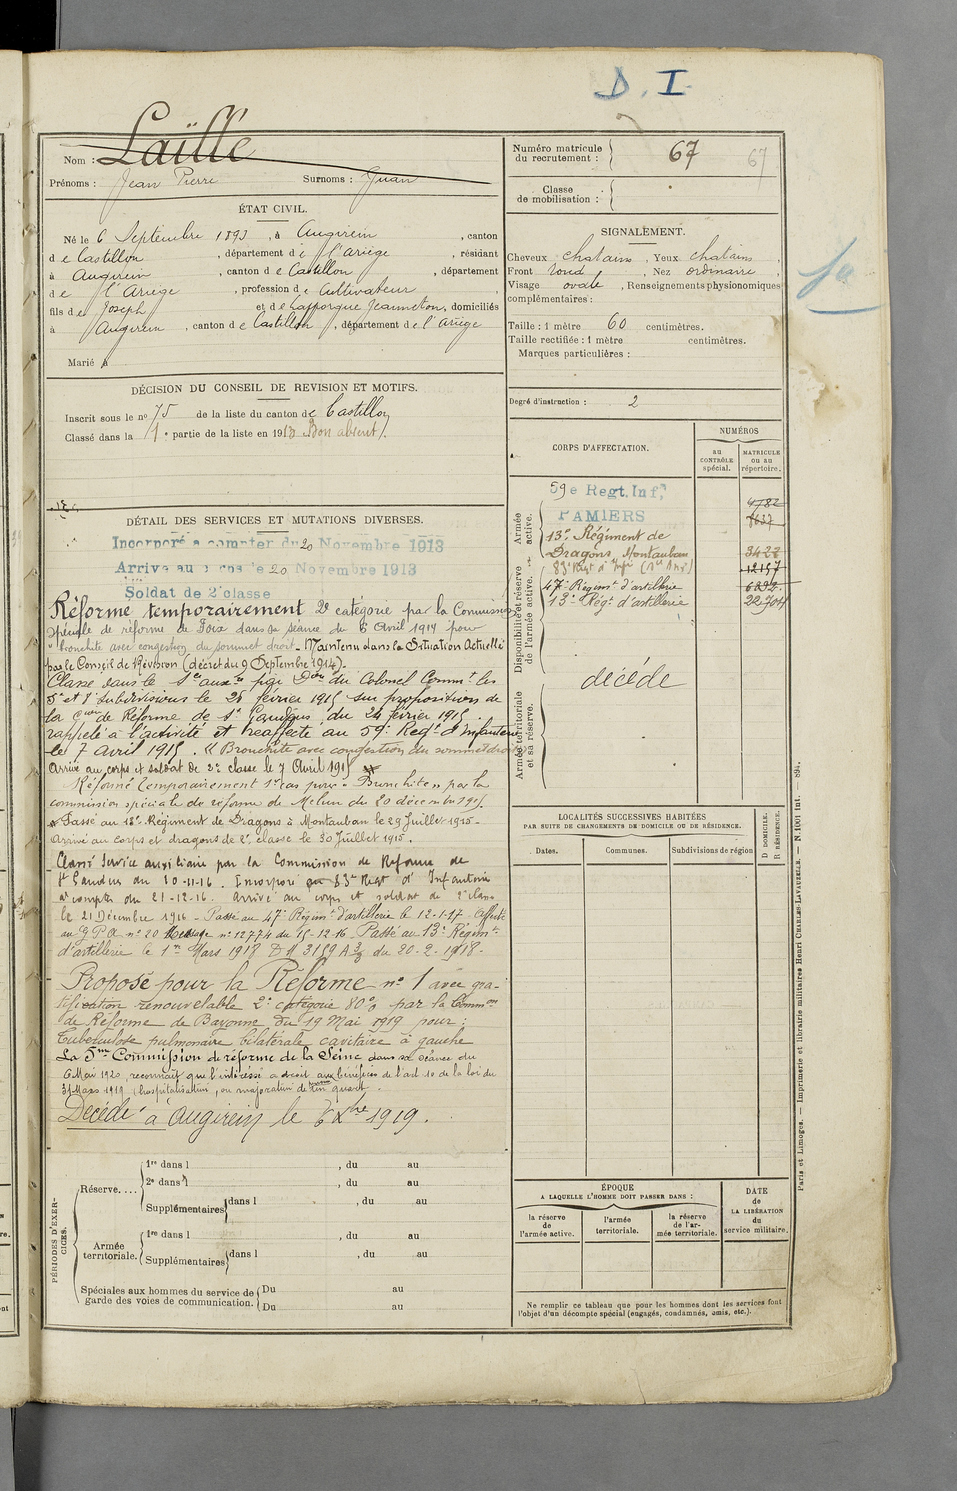 D. I.
Nom : Laïllé
Prénoms : Jean Pierre Surnoms : Juan
Numéro matricule du recrutement : 67 67
Classe de mobilisation :
ÉTAT CIVIL.
Né le 6 Septembre 1893, à Augirein, canton
de Castillon, département de l'Ariège, résidant
à Augirein, canton de Castillon, département
de l'Ariège, profession de Cultivateur
fils de Joseph et de Lafforgue Jeanneton, domiciliés
à Augirein, canton de Castillon, département de l'Ariège
Marié à
SIGNALEMENT.
Cheveux chatains, Yeux chatains,
Front rond, Nez ordinaire,
Visage ovale, Renseignements physionomiques
complémentaires :
Taille : 1 mètre 60 centimètres.
Taille rectifiée : 1 mètre centimètres.
Marques particulières :
Degré d'instruction : 2
DÉCISION DU CONSEIL DE REVISION ET MOTIFS.
Inscrit sous le no 75 de la liste du canton de Castillon
Classé dans la 1e partie de la liste en 1913 Bon absent.
DÉTAIL DES SERVICES ET MUTATIONS DIVERSES.
Incorporé à compter du 20 Novembre 1913
Arrivé au corps le 20 Novembre 1913
Soldat de 2e classe
Réformé temporairement 2e catégorie par la Commission
Spéciale de réforme de Foix dans sa séance du 6 Avril 1914 pour
"bronchite avec congestion du sommet droit. Maintenu dans la Situation Actuelle
par le Conseil de Révision (décret du 9 Septembre 1914).
Classé dans le Sce auxre par Don du Colonel Commt les
5e et 8e Subdivisions le 28 février 1915 sur proposition de
la Con de Réforme de St Gaudens du 24 février 1915.
rappelé à l'activité et réaffecté au 59e Regt d'Infanterie
le 7 Avril 1915. "Bronchite avec congestion du sommet droit
Arrivé au corps et soldat de 2e classe le 7 Avril 1915
Réformé temporairement 1er cas pour "Bronchite" par la
commission spéciale de réforme de Melun du 20 décembre 1915.
Passé au 13e Régiment de Dragons à Montauban le 29 Juillet 1915.
Arrivé au corps et dragons de 2e classe le 30 Juillet 1915.
Classé Service auxiliaire par la Commission de Réforme de
St Gaudens du 10-11-16. Incorporé au 83e Regt d'Infanterie
à compter du 21-12-16. Arrivé au corps et soldat de 2e classe
le 21 Décembre 1916. Passé au 47e Régimt d'artillerie le 12-1-17. Affecté
au G.P.A. no 20 Message no 12774 du 15-12-16. Passé au 13e Régimt
d'artillerie le 1er Mars 1918 DM 3159 A 3/3 du 20-2-1918.
Proposé pour la Réforme no 1 avec gra-
tification renouvelable 2e catégorie 80% par la Common
de Réforme de Bayonne du 19 Mai 1919 pour :
Tuberculose pulmonaire bilatérale cavitaire à gauche
La 5me Commission de réforme de la Seine dans sa séance du
6 Mai 1920, reconnaît que l'intéressé a droit aux bénéfices de l'art 10 de la loi du
31 Mars 1919 (hospitalisation, ou majoration de quart.
Décédé à Augirein le 6 Xbre 1919.
CORPS D'AFFECTATION.
NUMÉROS
au CONTRÔLE spécial.
MATRICULE ou au répertoire.
Armée active.
59e Regt. Inf.
PAMIERS
4782
8637
13e Régiment de
Dragons, Montauban 3427
Disponibilité et réserve de l'armée active.
83e Regt d'Infie 12157
47e Régimt d'artillerie
13e Régt d'artillerie 22704
Armée territoriale et sa réserve.
décédé
LOCALITÉS SUCCESSIVES HABITÉES
PAR SUITE DE CHANGEMENTS DE DOMICILE OU DE RÉSIDENCE.
Dates. Communes. Subdivisions de région
D DOMICILE.
R RÉSIDENCE.
PÉRIODES D'EXERCICES.
Réserve....
1re dans l , du au
2e dans l , du au
Supplémentaires dans l , du au
Armée territoriale.
1re dans l , du au
Supplémentaires dans l , du au
Spéciales aux hommes du service de garde des voies de communication.
Du au
Du au
ÉPOQUE
A LAQUELLE L'HOMME DOIT PASSER DANS :
la réserve de l'armée active.
l'armée territoriale.
la réserve de l'armée territoriale.
DATE de LA LIBÉRATION du service militaire.
Ne remplir ce tableau que pour les hommes dont les services font
l'objet d'un décompte spécial (engagés, condamnés, omis, etc.).
Paris et Limoges. — Imprimerie et librairie militaires Henri CHARLES-LAVAUZELLE. — N. 1001 int. — 894.